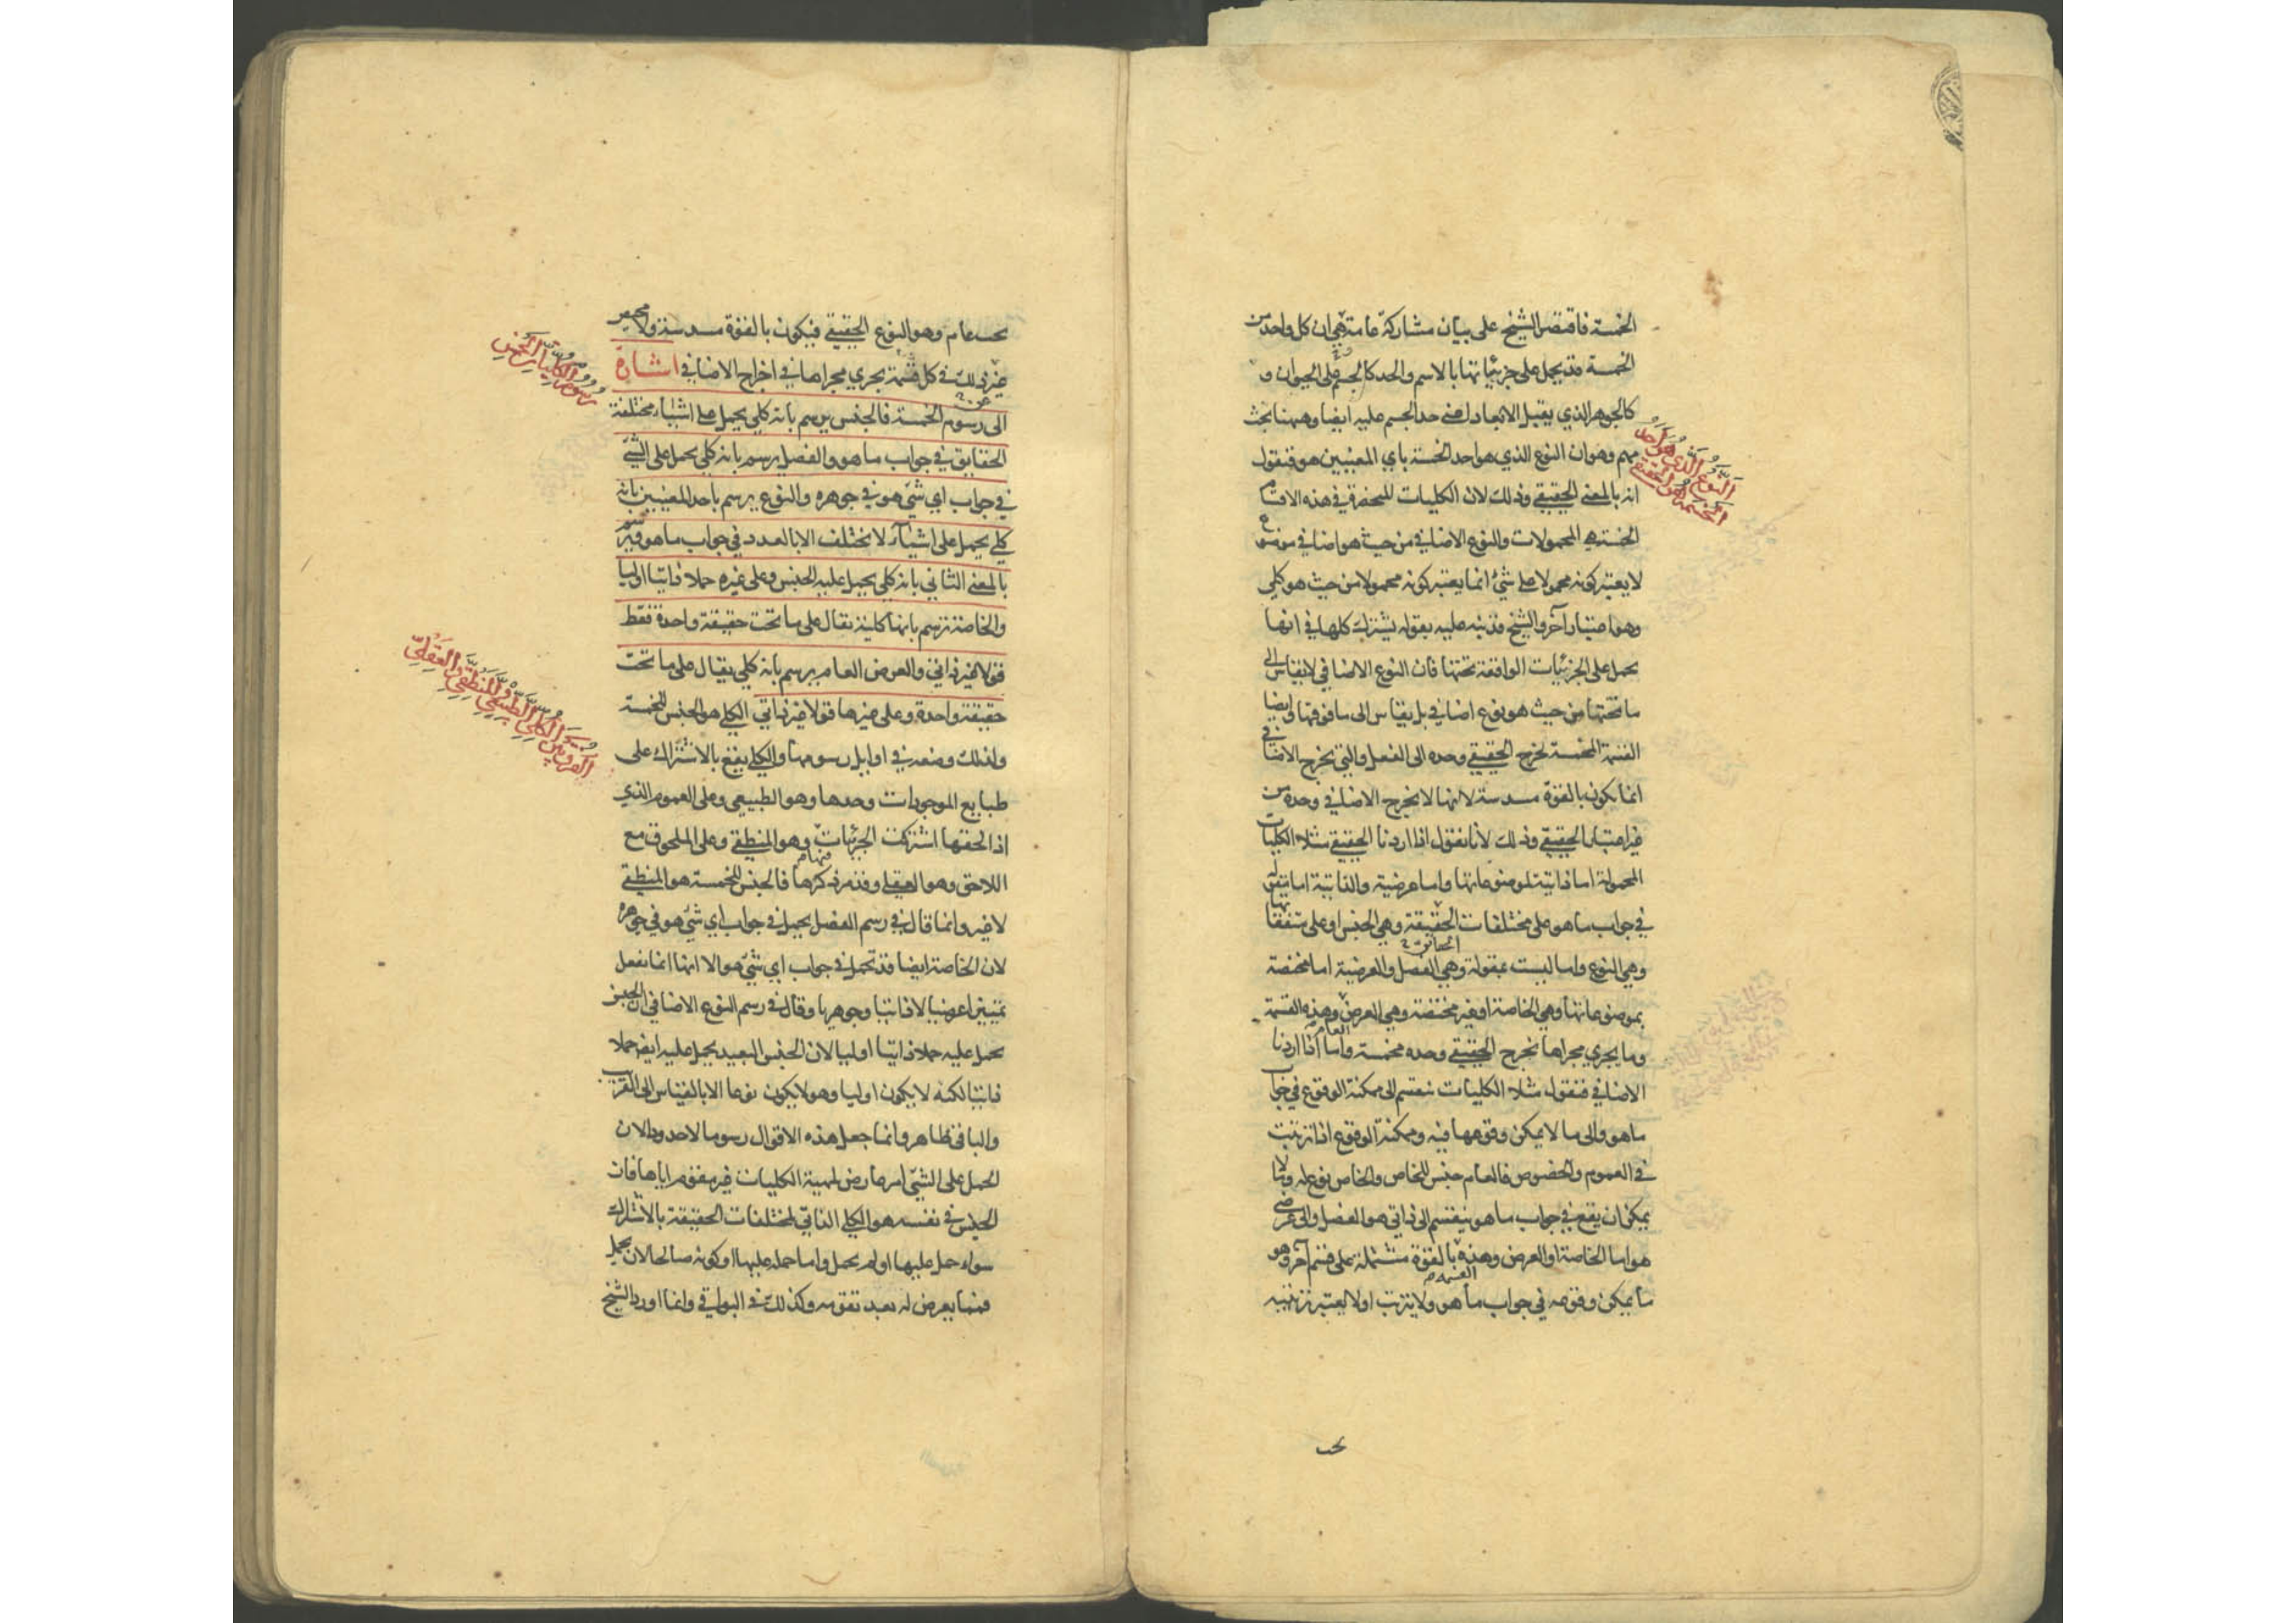 الخمسة فاقتصر الشيخ على بيان مشاركة عامة هي ان كل واحد من
الخمسة قد يحمل على جزئياتها بالاسم والحد كالجسم على الحيوان و
كالجوهر الذي يقبل الابعاد اعنى حد الجسم عليه ايضا وههنا بحث
مهم وهو ان النوع الذي هو احد الخمسة باي المعنيين هو فنقول
انه بالمعنى الحقيقي وذلك لان الكليات المنحصرة في هذه الاقسام
الخمسة هي المحمولات والنوع الاضافي من حيث هو اضافي موضوع
لا يعتبر كونه محمولا على شئ انما يعتبر كونه محمولا من حيث هو كلي
وهو اعتبار آخر والشيخ قد نبه عليه بقوله يشترك كلها في انها
تحمل على الجزئيات الواقعة تحتها فان النوع الاضافي لا يقاس الى
ما تحتها من حيث هو نوع اضافي بل يقاس الى ما فوقها وايضا
القسمة المخمسة تخرج الحقيقي وحده الى الفعل والتي تخرج الاضافي
انما يكون بالقوة مسدسة لانها لا تخرج الاضافي وحده من
غير اعتبار الحقيقي وذلك لانا نقول اذا اردنا الحقيقي مثلا الكليات
المحمولة اما ذاتية لموضوعاتها واما عرضية والذاتية اما مقولة
في جواب ما هو على مختلفات الحقيقة وهي الجنس او على متفقاتها
الحقائق
وهي النوع واما ليست بمقولة وهي الفصل والعرضية اما مختصة
بموضوعاتها وهي الخاصة او غير مختصة وهي العرض وهذه القسمة
العام
وما يجري مجراها تخرج الحقيقي وحده مخمسة واما اذا اردنا
الاضافي فنقول مثلا الكليات تنقسم الى ممكنة الوقوع في جواب
ما هو والى ما لا يمكن وقوعها فيه وممكنة الوقوع اذا ترتبت
في العموم والخصوص فالعام جنس للخاص والخاص نوع له وما لا
يمكن ان يقع في جواب ما هو ينقسم الى ذاتي هو الفصل والى عرضي
هو اما الخاصة او العرض وهذه بالقوة مشتملة على قسم آخر وهو
القسمة
ما يمكن وقوعه في جواب ما هو ولا يترتب او لا يعتبر ترتيبه
تحت
النوع الذي هو احد
الخمسة هو الحقيقي
تحت عام وهو النوع الحقيقي فيكون بالقوة مسدسة ولا محيص
عن ذلك في كل قسمة يجري مجراها في اخراج الاضافي اشارة
الى رسوم الخمسة فالجنس يرسم بانه كلي يحمل على اشياء مختلفة
الحقايق في جواب ما هو والفصل يرسم بانه كلي يحمل على الشئ
في جواب اي شئ هو في جوهره والنوع يرسم باحد المعنيين بانه
كلي يحمل على اشياء لا تختلف الا بالعدد في جواب ما هو ويرسم
بالمعنى الثاني بانه كلي يحمل عليه الجنس وعلى غيره حملا ذاتيا اوليا
والخاصة ترسم بانها كلية تقال على ما تحت حقيقة واحدة فقط
قولا غير ذاتي والعرض العام يرسم بانه كلي يقال على ما تحت
حقيقة واحدة وعلى غيرها قولا غير ذاتي الكلي هو الجنس للخمسة
ولذلك وضعه في اوايل رسومها والكلي يقع بالاشتراك على
طبايع الموجودات وحدها وهو الطبيعي وعلى العموم الذي
اذا لحقها اشتركت الجزئيات وهو المنطقي وعلى الملحوق مع
فيها
اللاحق وهو العقلي وقد مر ذكرها فالجنس للخمسة هو المنطقي
لا غير وانما قال في رسم الفصل يحمل في جواب اي شئ هو في جوهره
لان الخاصة ايضا قد تحمل في جواب اي شئ هو الا انها انما تفعل
تمييزا عرضيا لا ذاتيا وجوهريا وقال في رسم النوع الاضافي ان الجنس
يحمل عليه حملا ذاتيا اوليا لان الجنس البعيد يحمل عليه ايضا حملا
ذاتيا لكنه لا يكون اوليا وهو لا يكون نوعا الا بالقياس الى القريب
والباقي ظاهر وانما جعل هذه الاقوال رسوما لا حدودا لان
الحمل على الشئ امر عارض لمهية الكليات غير مقوم اياها فان
الجنس في نفسه هو الكلي الذاتي لمختلفات الحقيقة بالاشتراك
سواء حمل عليها او لم يحمل واما حمله عليها او كونه صالحا لان يحمل
فمما يعرض له بعد تقومه وكذلك في البواقي وانما اورد الشيخ
رسوم الكليات الخمس
الفرق بين الكلي الطبيعي والمنطقي والعقلي